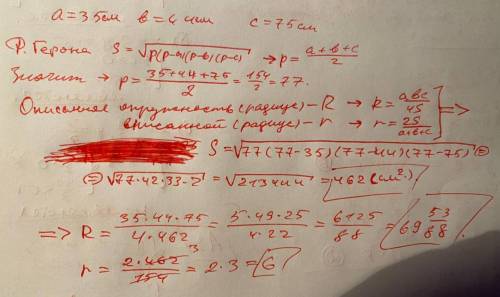 a = 35см в = 44см c = 75см
Ф. Герона S = √p(p-a)(p-b)(p-c) → p = a+b+c/2
Значит → p = 35+44+75/2 = 154/2 = 77.
Описанная окружность (радиус) – R → R = abc/4S
вписанной (радиус) – r → r = 2S/a+b+c => 
S = √77(77-35)(77-44)(77-75) =
= √77·42·33·2 = √213444 = 462 (см².)
=> R = 35·44·75/4·462 = 5·49·25/4·22 = 6125/88 = 69 53/88.
r = 2·462 3/154 = 2·3 = 6